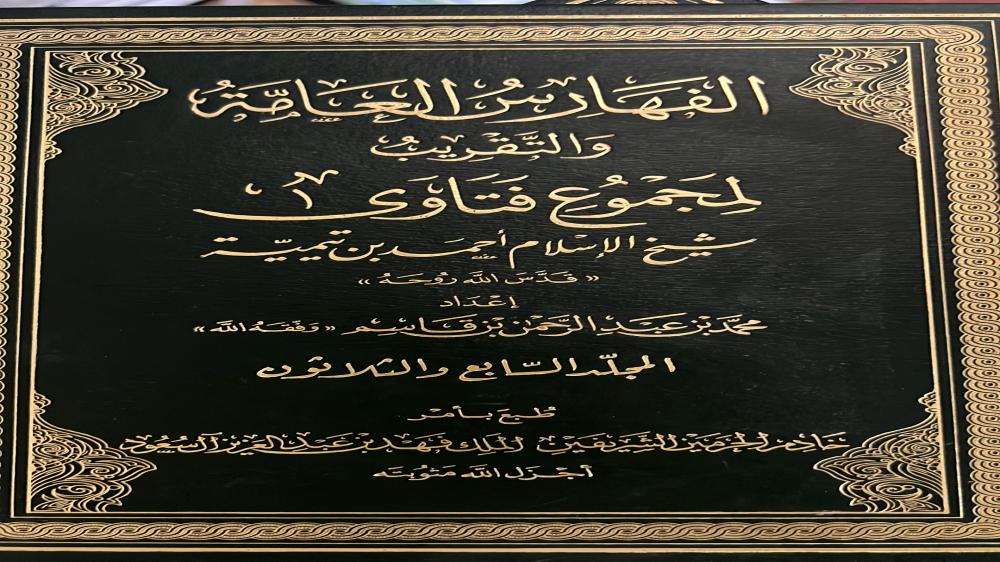 الفهارس العامة
والتقريب
لمجموع فتاوى
شيخ الإسلام أحمد بن تيمية
« قدس الله روحه »
إعداد
محمد بن عبد الرحمن بن قاسم « وفقه الله »
المجلد السابع والثلاثون
طبع بأمر
خادم الحرمين الشريفين الملك فهد بن عبد العزيز آل سعود
أجزل الله مثوبته